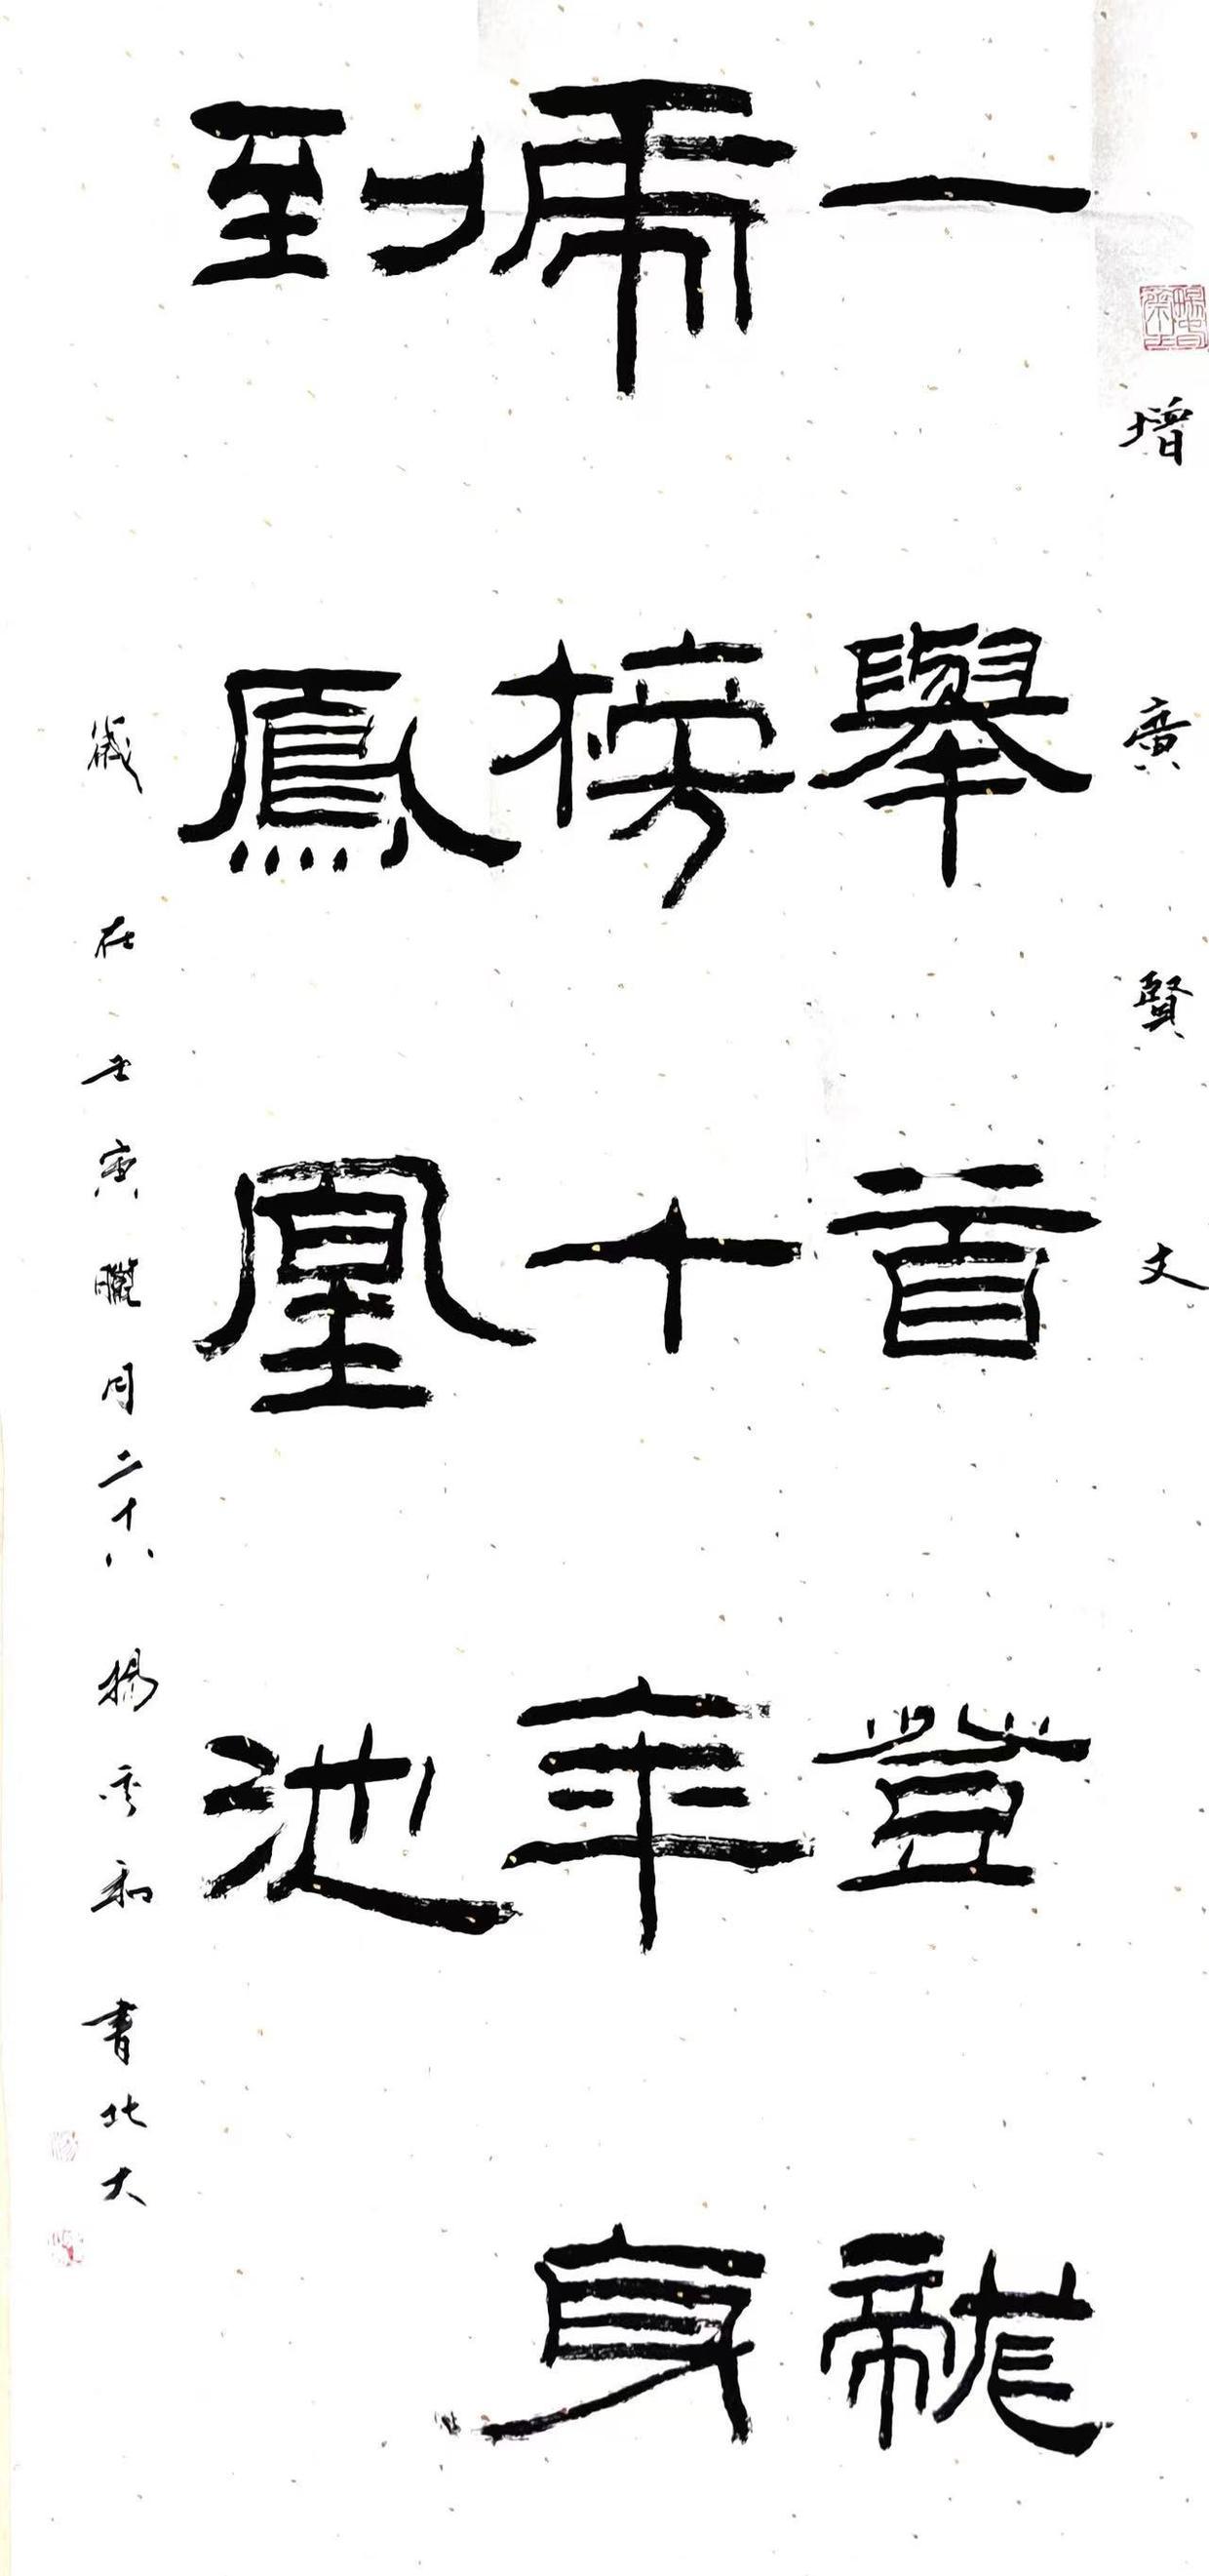 增廣賢文
一舉首登龍
虎榜十年身
到鳳凰池
歲在壬寅臘月二十八 楊和書北大